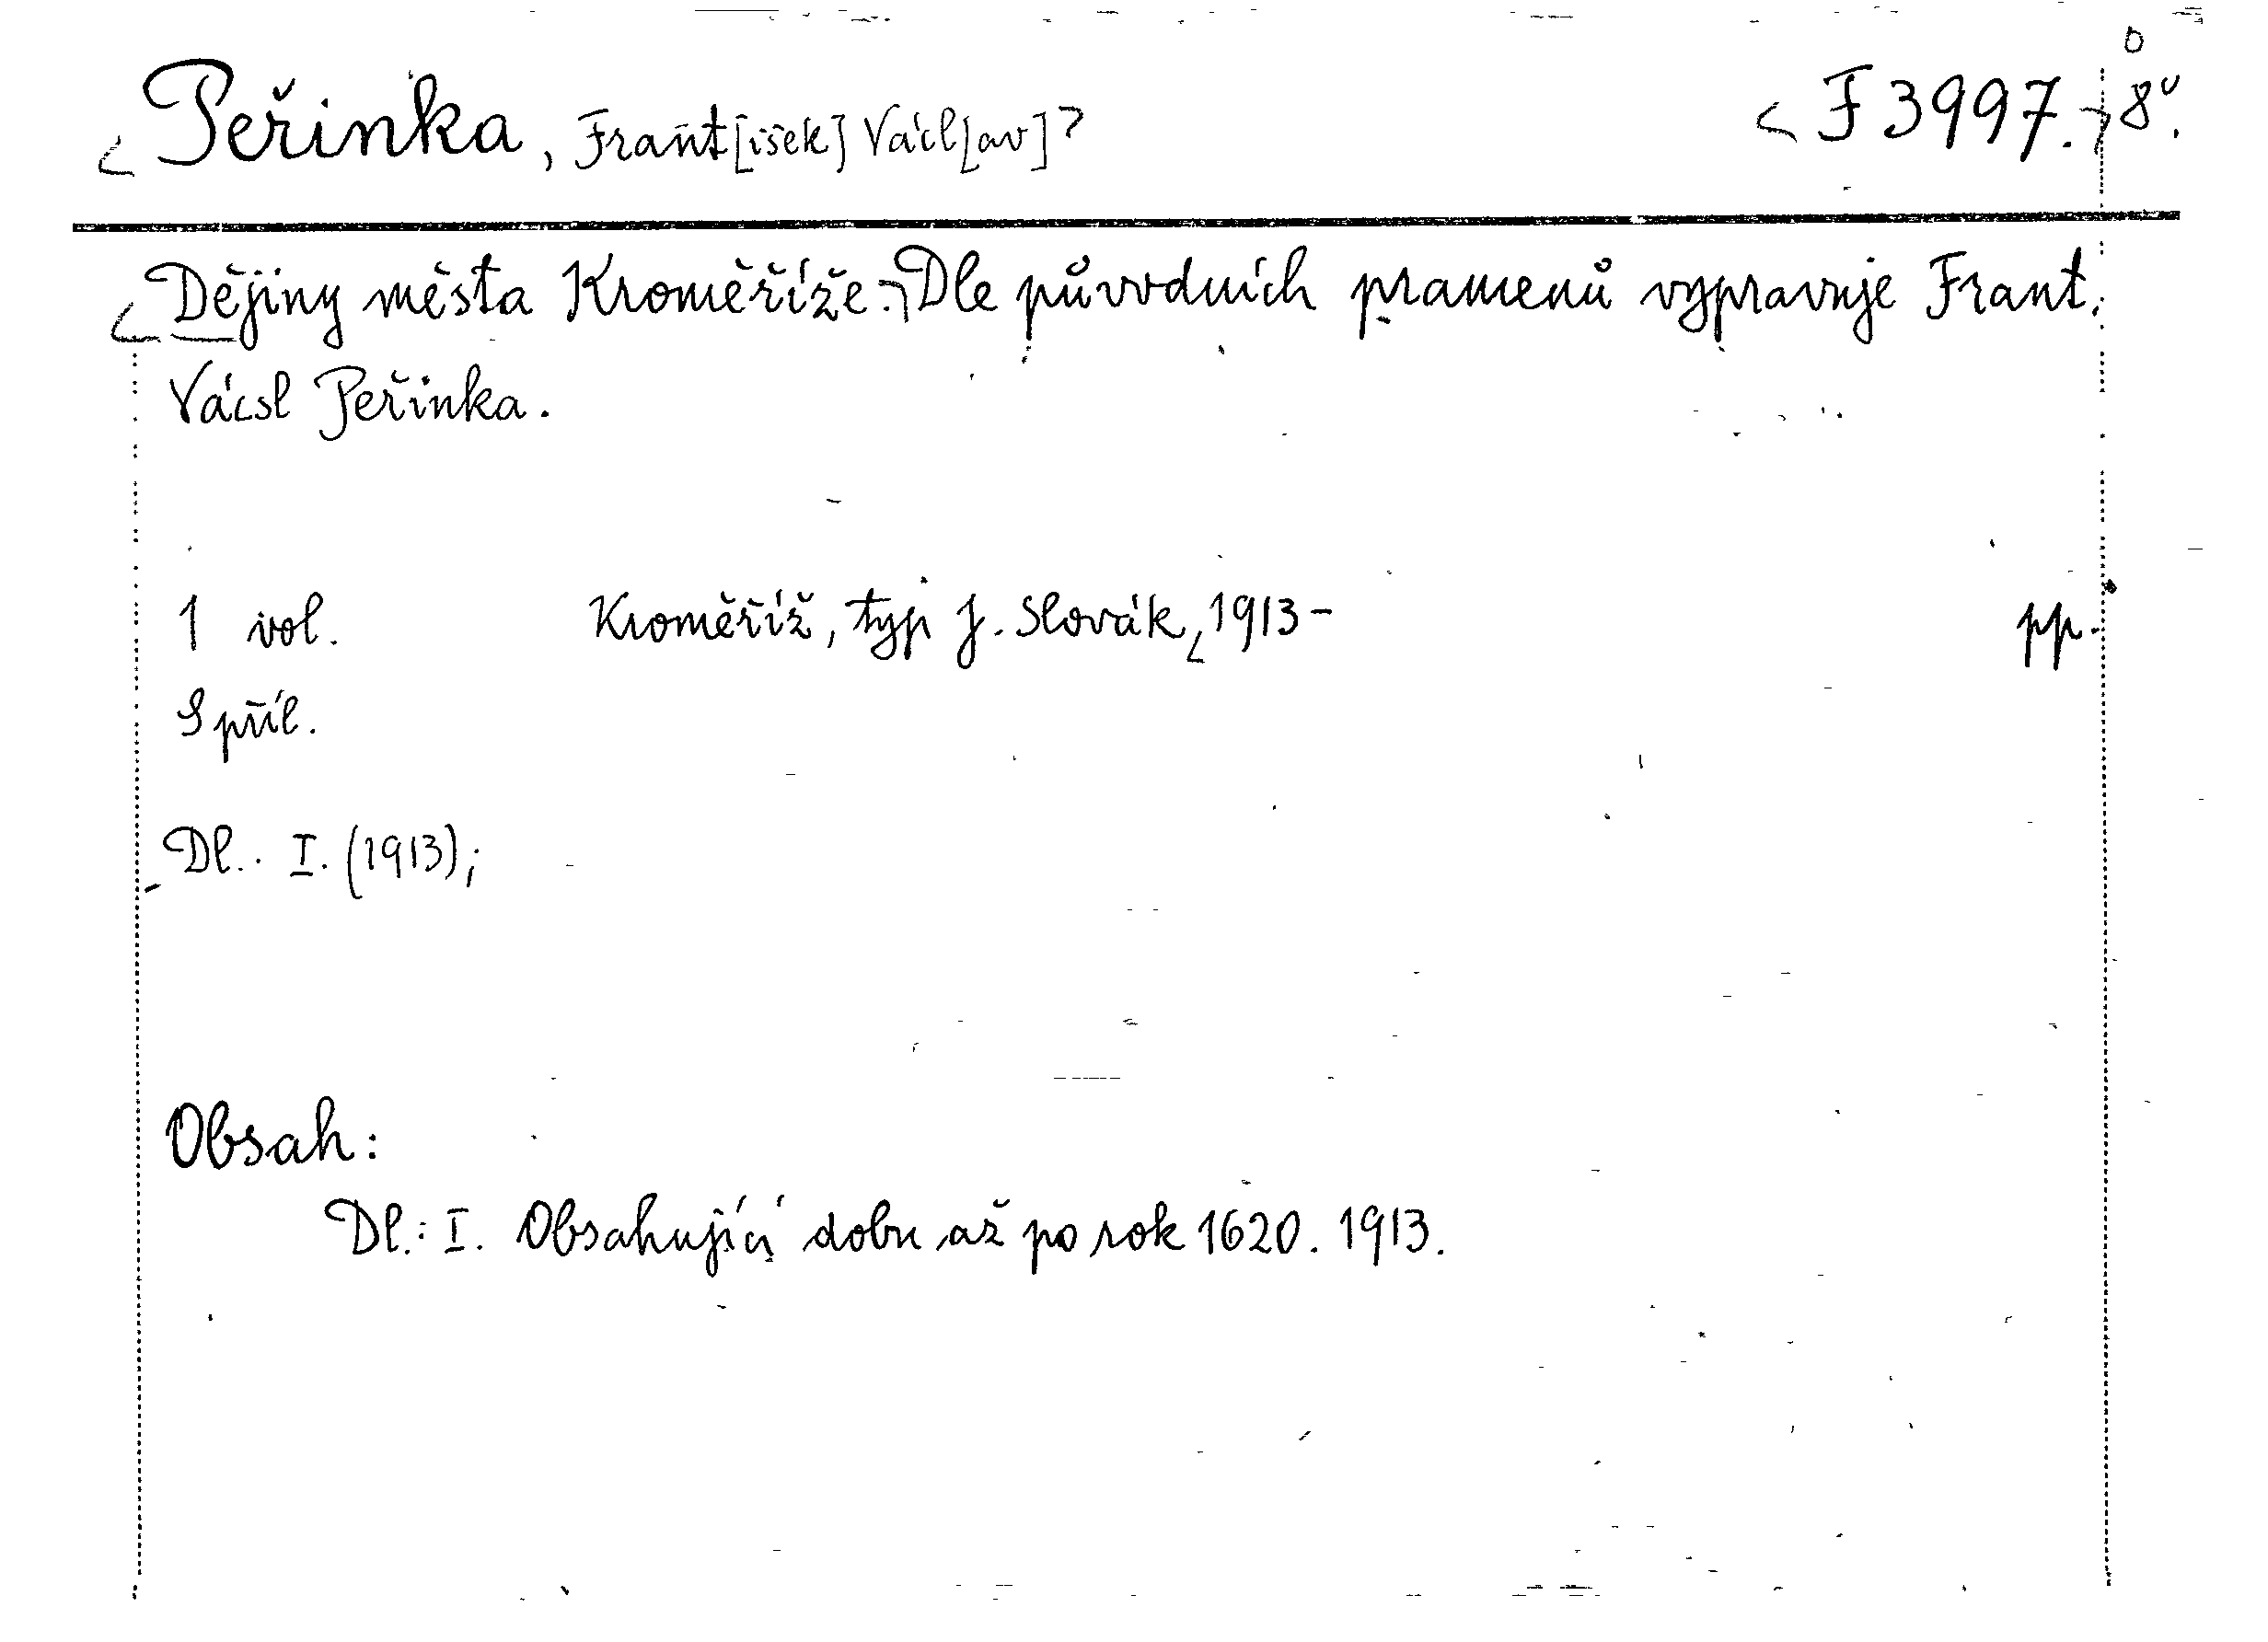 Peřinka, Frant[išek] Václ[av] F 3997. 8°.
Dějiny města Kroměříže. Dle původních pramenů vypravuje Frant.
Václ Peřinka.
1 vol. Kroměříž, typ J. Slovák, 1913- pp.
S příl.
Dl.: I. (1913);
Obsah:
Dl.: I. Obsahující dobu až po rok 1620. 1913.